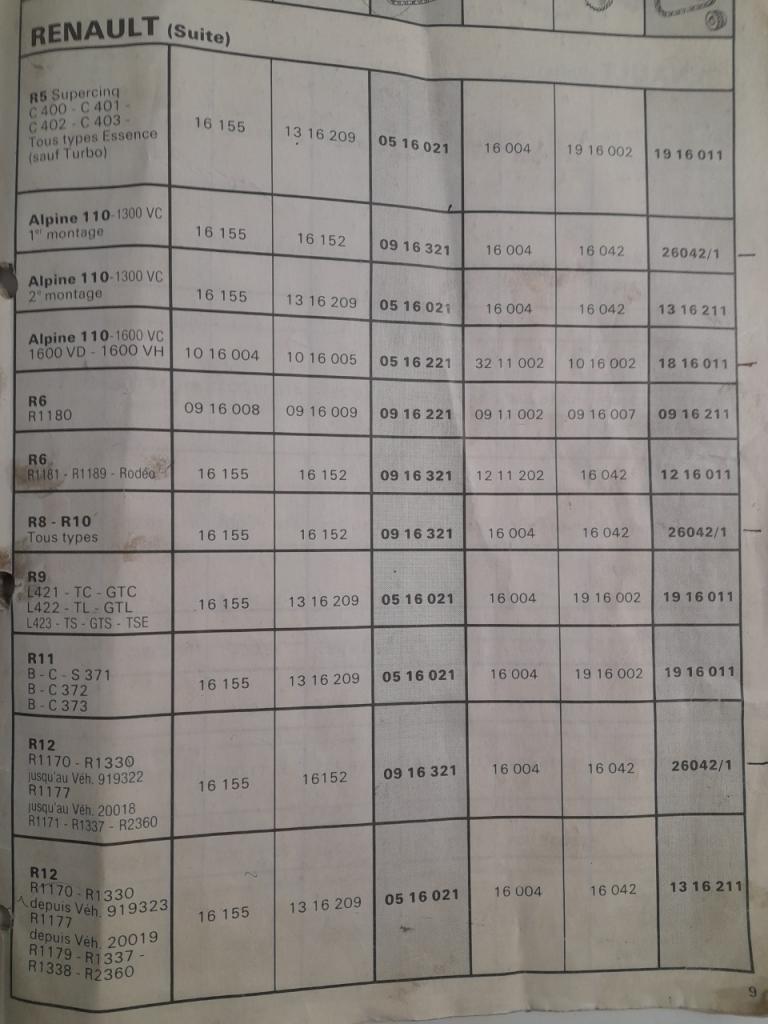 RENAULT (Suite)
R5 Supercinq
C 400 - C 401 -
C 402 - C 403 -
Tous types Essence
(sauf Turbo)
16 155
13 16 209
05 16 021
16 004
19 16 002
19 16 011
Alpine 110-1300 VC
1er montage
16 155
16 152
09 16 321
16 004
16 042
26042/1
Alpine 110-1300 VC
2e montage
16 155
13 16 209
05 16 021
16 004
16 042
13 16 211
Alpine 110-1600 VC
1600 VD - 1600 VH
10 16 004
10 16 005
05 16 221
32 11 002
10 16 002
18 16 011
R6
R1180
09 16 008
09 16 009
09 16 221
09 11 002
09 16 007
09 16 211
R6
R1181 - R1189 - Rodéo
16 155
16 152
09 16 321
12 11 202
16 042
12 16 011
R8 - R10
Tous types
16 155
16 152
09 16 321
16 004
16 042
26042/1
R9
L421 - TC - GTC
L422 - TL - GTL
L423 - TS - GTS - TSE
16 155
13 16 209
05 16 021
16 004
19 16 002
19 16 011
R11
B - C - S 371
B - C 372
B - C 373
16 155
13 16 209
05 16 021
16 004
19 16 002
19 16 011
R12
R1170 - R1330
jusqu'au Véh. 919322
R1177
jusqu'au Véh. 20018
R1171 - R1337 - R2360
16 155
16152
09 16 321
16 004
16 042
26042/1
R12
R1170 - R1330
depuis Véh. 919323
R1177
depuis Véh. 20019
R1179 - R1337 -
R1338 - R2360
16 155
13 16 209
05 16 021
16 004
16 042
13 16 211
9